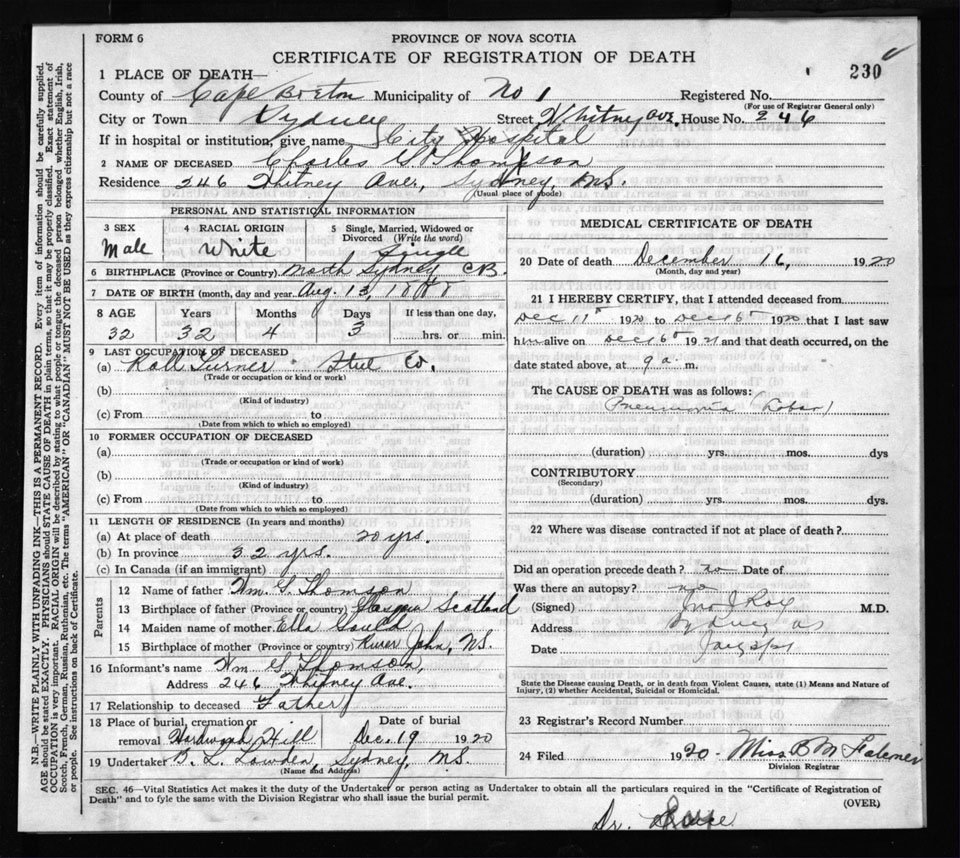 FORM 6
PROVINCE OF NOVA SCOTIA
CERTIFICATE OF REGISTRATION OF DEATH
230
1 PLACE OF DEATH—
County of Cape Breton Municipality of No 1 Registered No.
(For use of Registrar General only)
City or Town Sydney Street Whitney ave. House No. 246
If in hospital or institution, give name City Hospital
2 NAME OF DECEASED Charles G. Thomson
Residence 246 Whitney Aver, Sydney, N.S.
(Usual place of abode)
PERSONAL AND STATISTICAL INFORMATION
3 SEX 4 RACIAL ORIGIN 5 Single, Married, Widowed or Divorced (Write the word)
Male White Single
6 BIRTHPLACE (Province or Country) North Sydney C.B.
7 DATE OF BIRTH (month, day and year Aug. 13, 1888
8 AGE Years Months Days If less than one day,
32 32 4 3 hrs. or min.
9 LAST OCCUPATION OF DECEASED
(a) Roll Turner Steel Co.
(Trade or occupation or kind of work)
(b)
(Kind of industry)
(c) From to
(Date from which to which so employed)
10 FORMER OCCUPATION OF DECEASED
(a)
(Trade or occupation or kind of work)
(b)
(Kind of industry)
(c) From to
(Date from which to which so employed)
11 LENGTH OF RESIDENCE (In years and months)
(a) At place of death 20 yrs.
(b) In province 32 yrs.
(c) In Canada (if an immigrant)
Parents
12 Name of father Wm. G. Thomson
13 Birthplace of father (Province or country) Glasgow Scotland
14 Maiden name of mother Ella Gould
15 Birthplace of mother (Province or country) River John, N.S.
16 Informant's name Wm G Thomson,
Address 246 Whitney Ave.
17 Relationship to deceased Father
18 Place of burial, cremation or removal Hardwood Hill Date of burial Dec. 19 1920
19 Undertaker Lowden, Sydney, N.S.
(Name and Address)
MEDICAL CERTIFICATE OF DEATH
20 Date of death December 16, 1920
(Month, day and year)
21 I HEREBY CERTIFY, that I attended deceased from
Dec 11 1920 to Dec 16 1920 that I last saw
him alive on Dec 16 1921 and that death occurred, on the
date stated above, at 9 a m.
The CAUSE OF DEATH was as follows:
Pneumonia (Lobar)
(duration) yrs. mos. dys
CONTRIBUTORY
(Secondary)
(duration) yrs. mos. dys.
22 Where was disease contracted if not at place of death?
Did an operation precede death? no Date of
Was there an autopsy? no
(Signed) Jno J Roy M.D.
Address Sydney
Date
State the Disease causing Death, or in death from Violent Causes, state (1) Means and Nature of
Injury, (2) whether Accidental, Suicidal or Homicidal.
23 Registrar's Record Number
24 Filed 1920 Miss B M Falconer
Division Registrar
SEC. 46—Vital Statistics Act makes it the duty of the Undertaker or person acting as Undertaker to obtain all the particulars required in the "Certificate of Registration of
Death" and to fyle the same with the Division Registrar who shall issue the burial permit.
(OVER)
Dr.
N.B.—WRITE PLAINLY WITH UNFADING INK—THIS IS A PERMANENT RECORD. Every item of information should be carefully supplied.
AGE should be stated EXACTLY. PHYSICIANS should STATE CAUSE OF DEATH in plain terms, so that it may be properly classified. Exact statement of
OCCUPATION is very important. RACIAL ORIGIN will be described by stating to what people or tongue the deceased person belonged whether English, Irish,
Scotch, French, German, Russian, Ruthenian, etc. The terms "AMERICAN" OR "CANADIAN" MUST NOT BE USED as they express citizenship but not a race
or people. See instructions on back of Certificate.